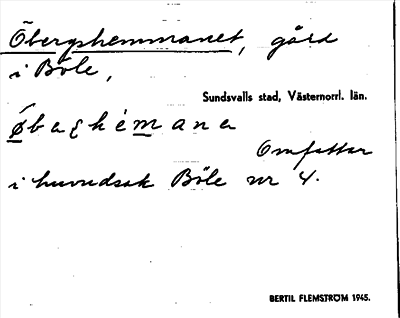 Öbergshemmanet, gård
i Böle,
Sundsvalls stad, Västernorrl. län.
Omfattar
i huvudsak Böle nr 4.
BERTIL FLEMSTRÖM 1945.